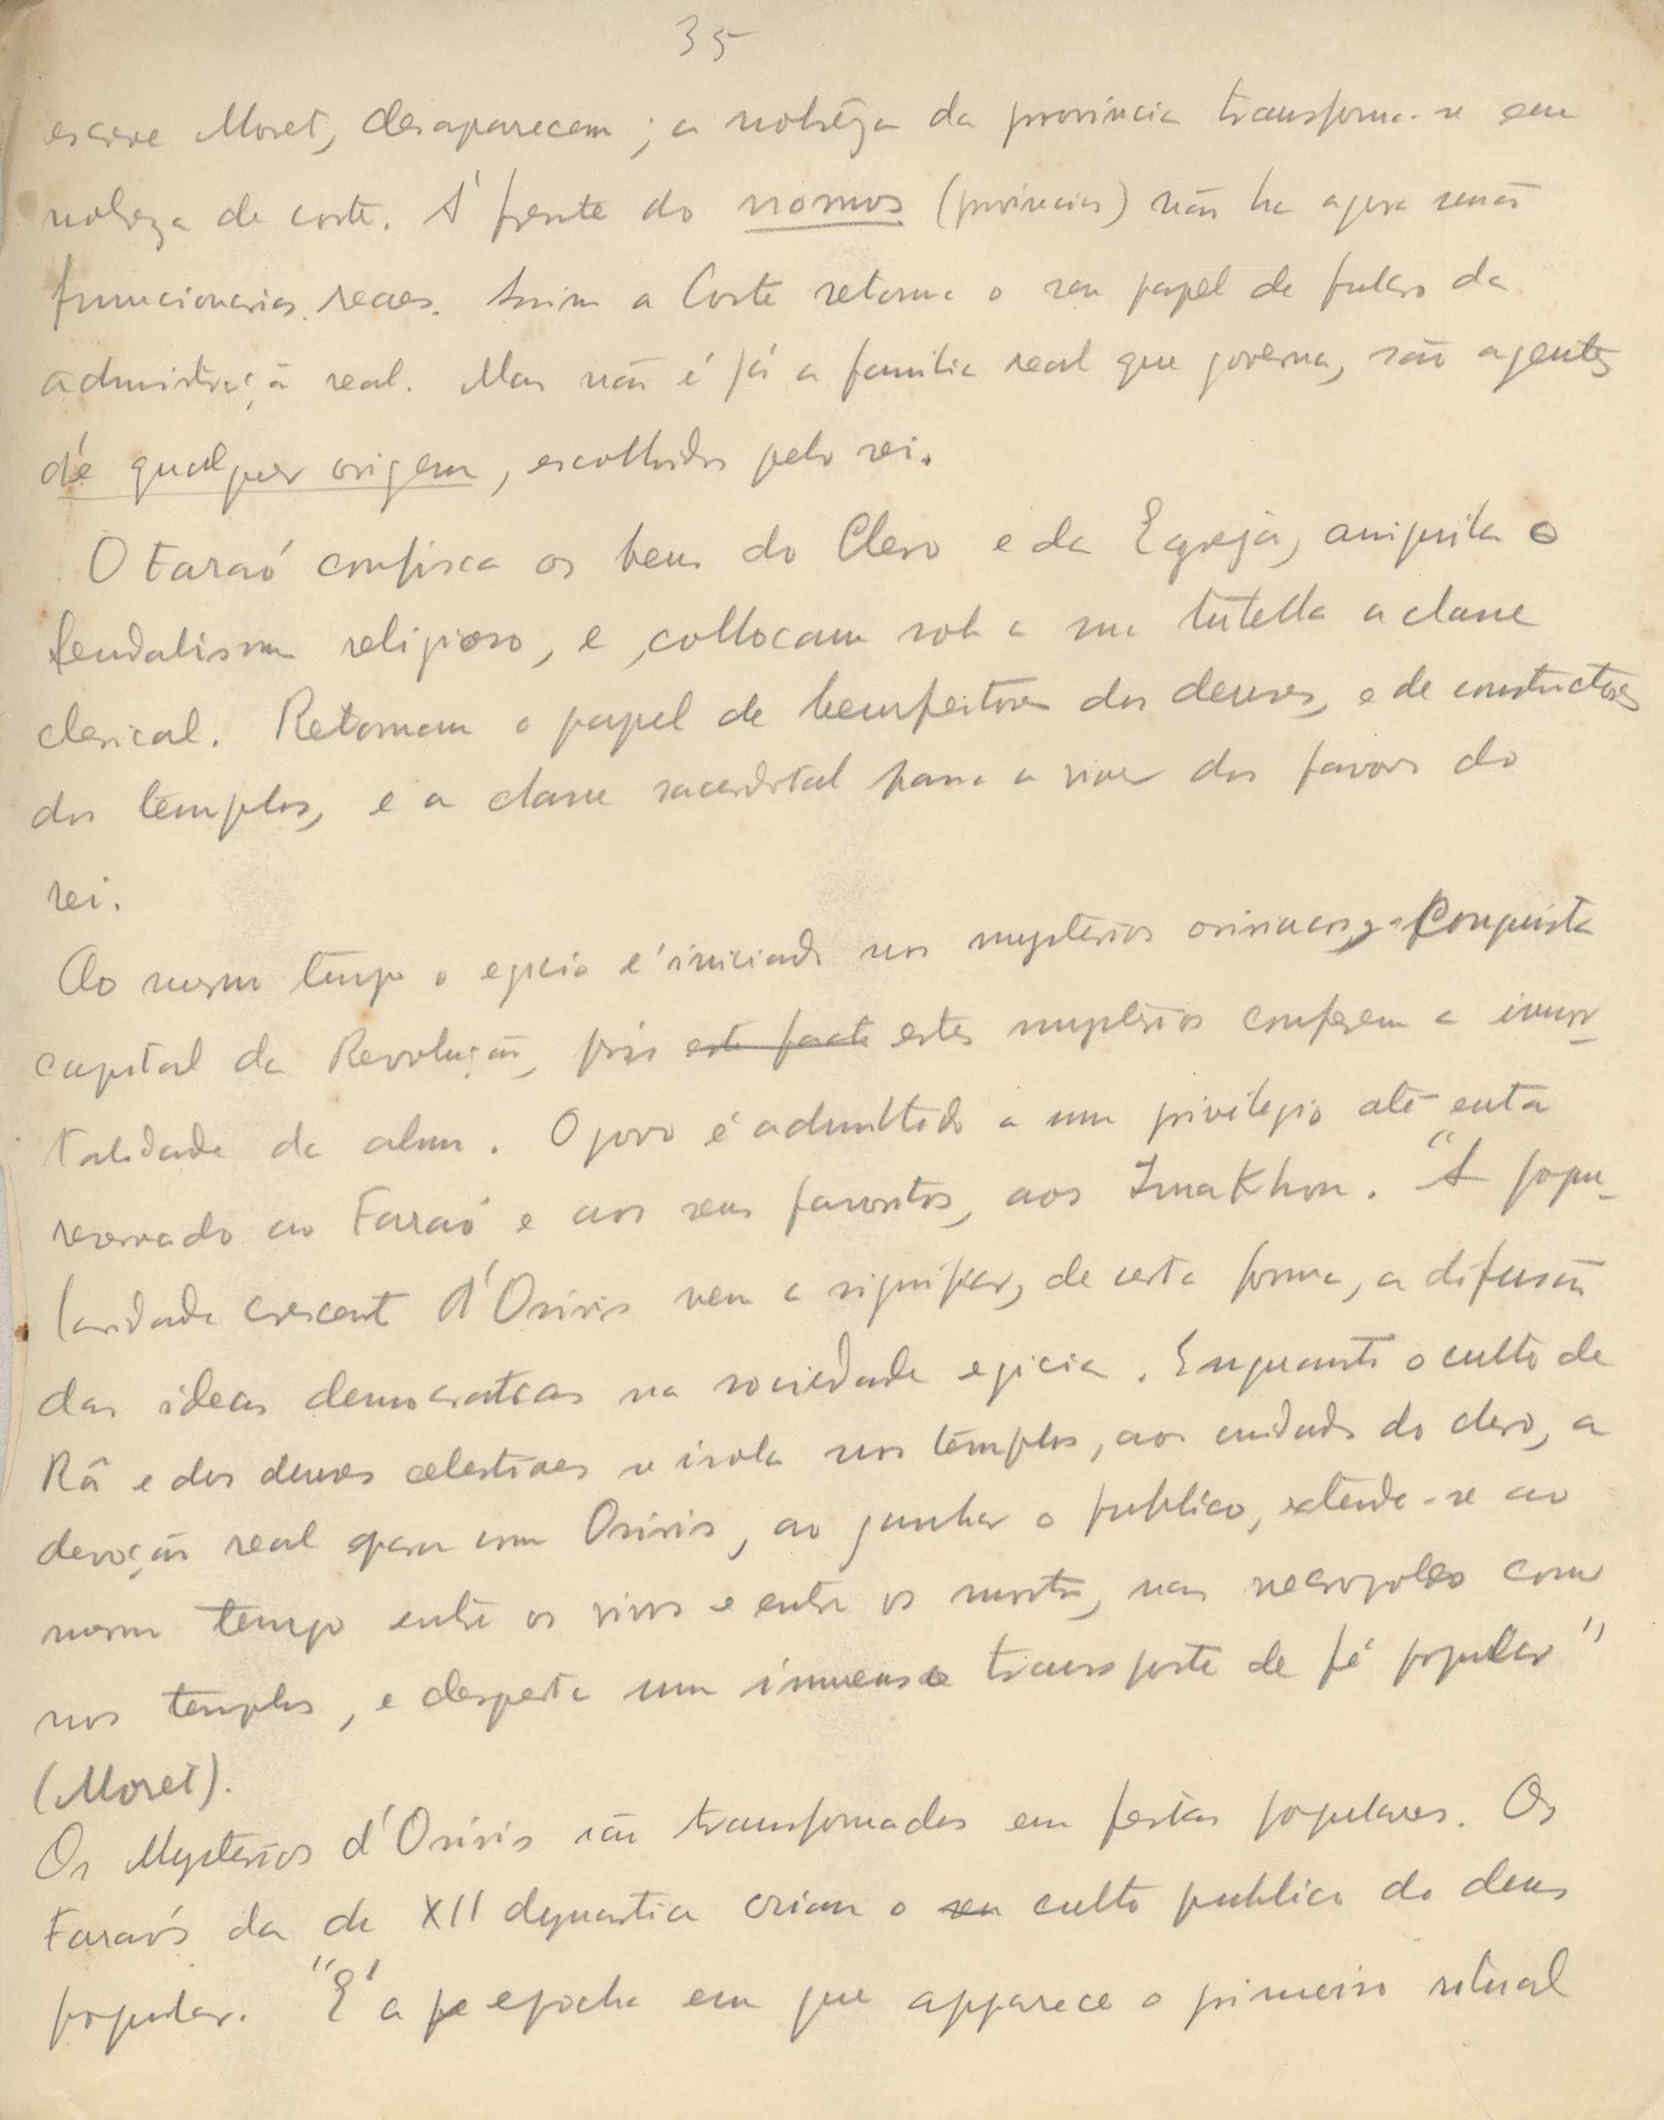 35
escreve Moret, desaparecem; a nobrêza da provincia transforma-se em
nobreza de corte. Á frente do nomos (provincias) não ha agora senão
funncionarios reaes. Assim a Corte retoma o seu papel de fulcro da
administração real. Mas não é já a familia real que governa, são agentes
de qualquer origem, escolhidos pelo rei.
O Faraó confisca os bens do Clero e da Egreja, aniquila o
feudalismo religioso, e collocam sob a sua tutella a classe
clerical. Retomam o papel de bemfeitores dos deuses, e de constructores
dos templos, e a classe sacerdotal passa a viver dos favores do
rei.
Ao mesmo tempo o egicio é iniciado nos mysterios osirianos, Conquista
capital da Revolução, pois este facto estes mysterios conferem a imor-
talidade da alma. O povo é admittido a um privilegio até então
reservado ao Faraó e aos seus favoritos, aos Imakhou. "A popu-
laridade crescente d'Osiris vem a significar, de certa forma, a difusão
das ideas democraticas na sociedade egicia. Enquanto o culto de
Râ e dos deuses celestiaes se isola nos templos, aos cuidados do clero, a
devoção real para com Osiris, ao ganhar o publico, extende-se ao
mesmo tempo entre os vivos e entre os mortos, nas necropoles como
nos templos, e desperta um immenso transporte de fé popular"
(Moret).
Os Mysterios d'Osiris são transformados em festas populares. Os
Faraós da de XII dynastia criam o seu culto publico do deus
popular. "É a pe epocha em que apparece o primeiro ritual